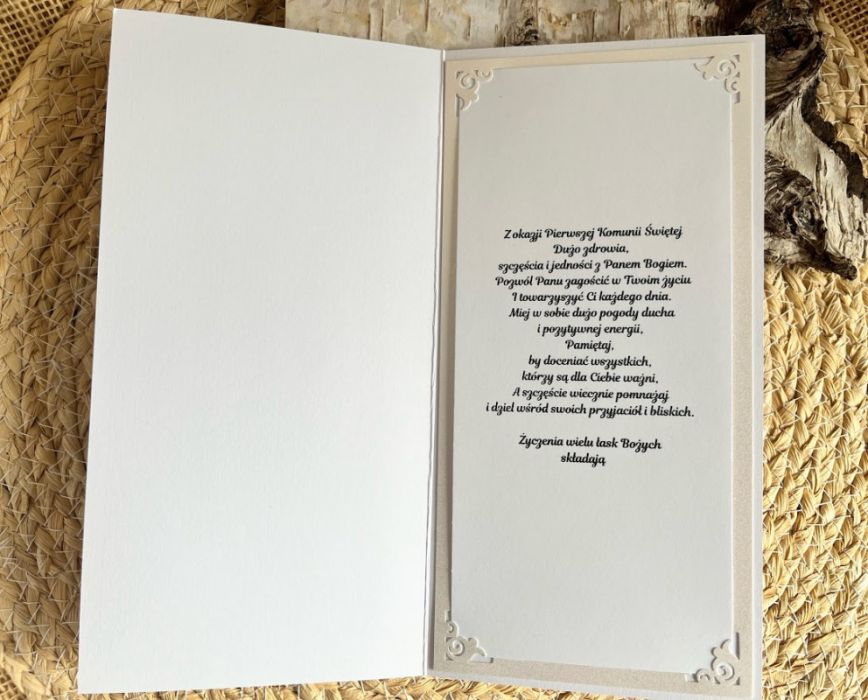 Z okazji Pierwszej Komunii Świętej
Dużo zdrowia,
szczęścia i jedności z Panem Bogiem.
Pozwól Panu zagościć w Twoim życiu
I towarzyszyć Ci każdego dnia.
Miej w sobie dużo pogody ducha
i pozytywnej energii,
Pamiętaj,
by doceniać wszystkich,
którzy są dla Ciebie ważni,
A szczęście wiecznie pomnażaj
i dziel wśród swoich przyjaciół i bliskich.
Życzenia wielu łask Bożych
składają